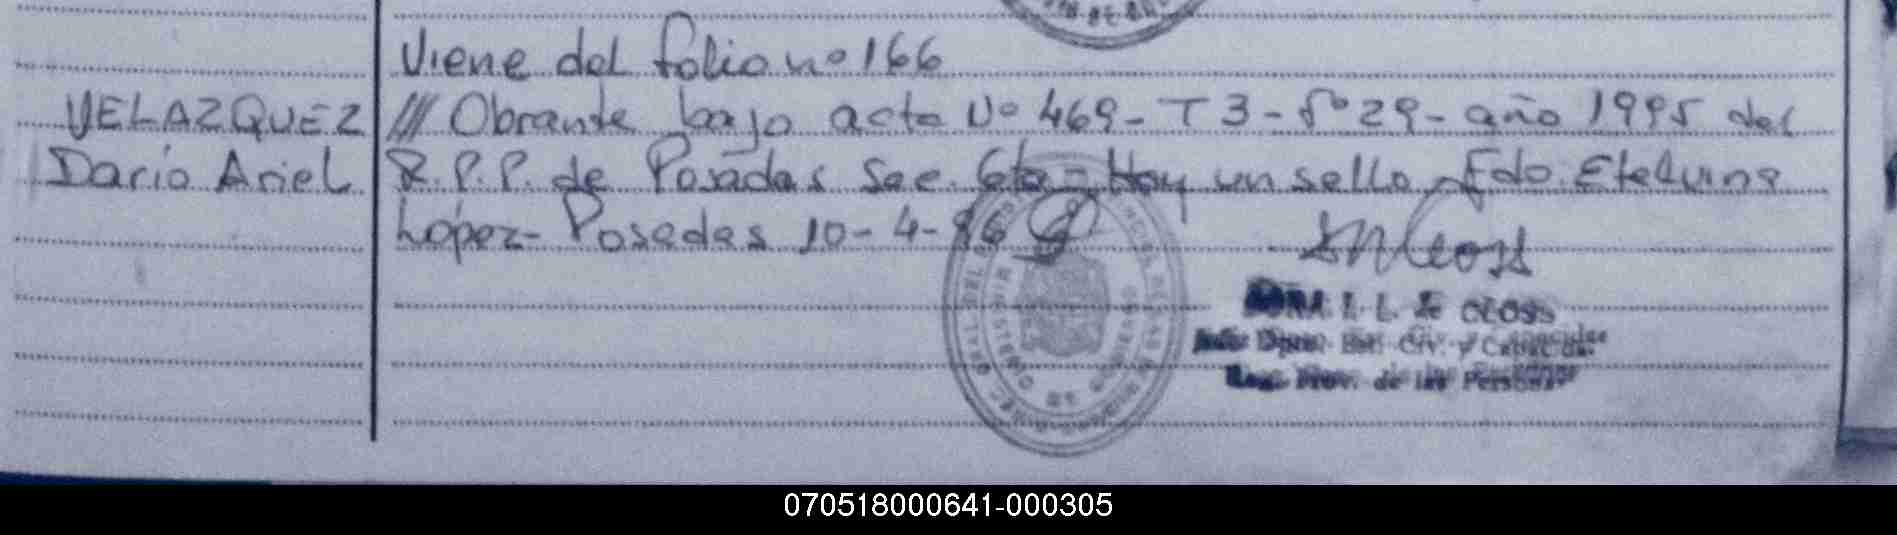 Viene del folio nº 166
VELAZQUEZ /// Obrante bajo acta Nº 469- T 3- Fº 29- año 1995 del
Darío Ariel R.P.P. de Posadas Sec. 6ta- Hay un sello. Fdo. Etelvina
López- Posadas 10-4-96
L. L. de CLOSS
Civ. y
Prov. de las Personas
070518000641-000305